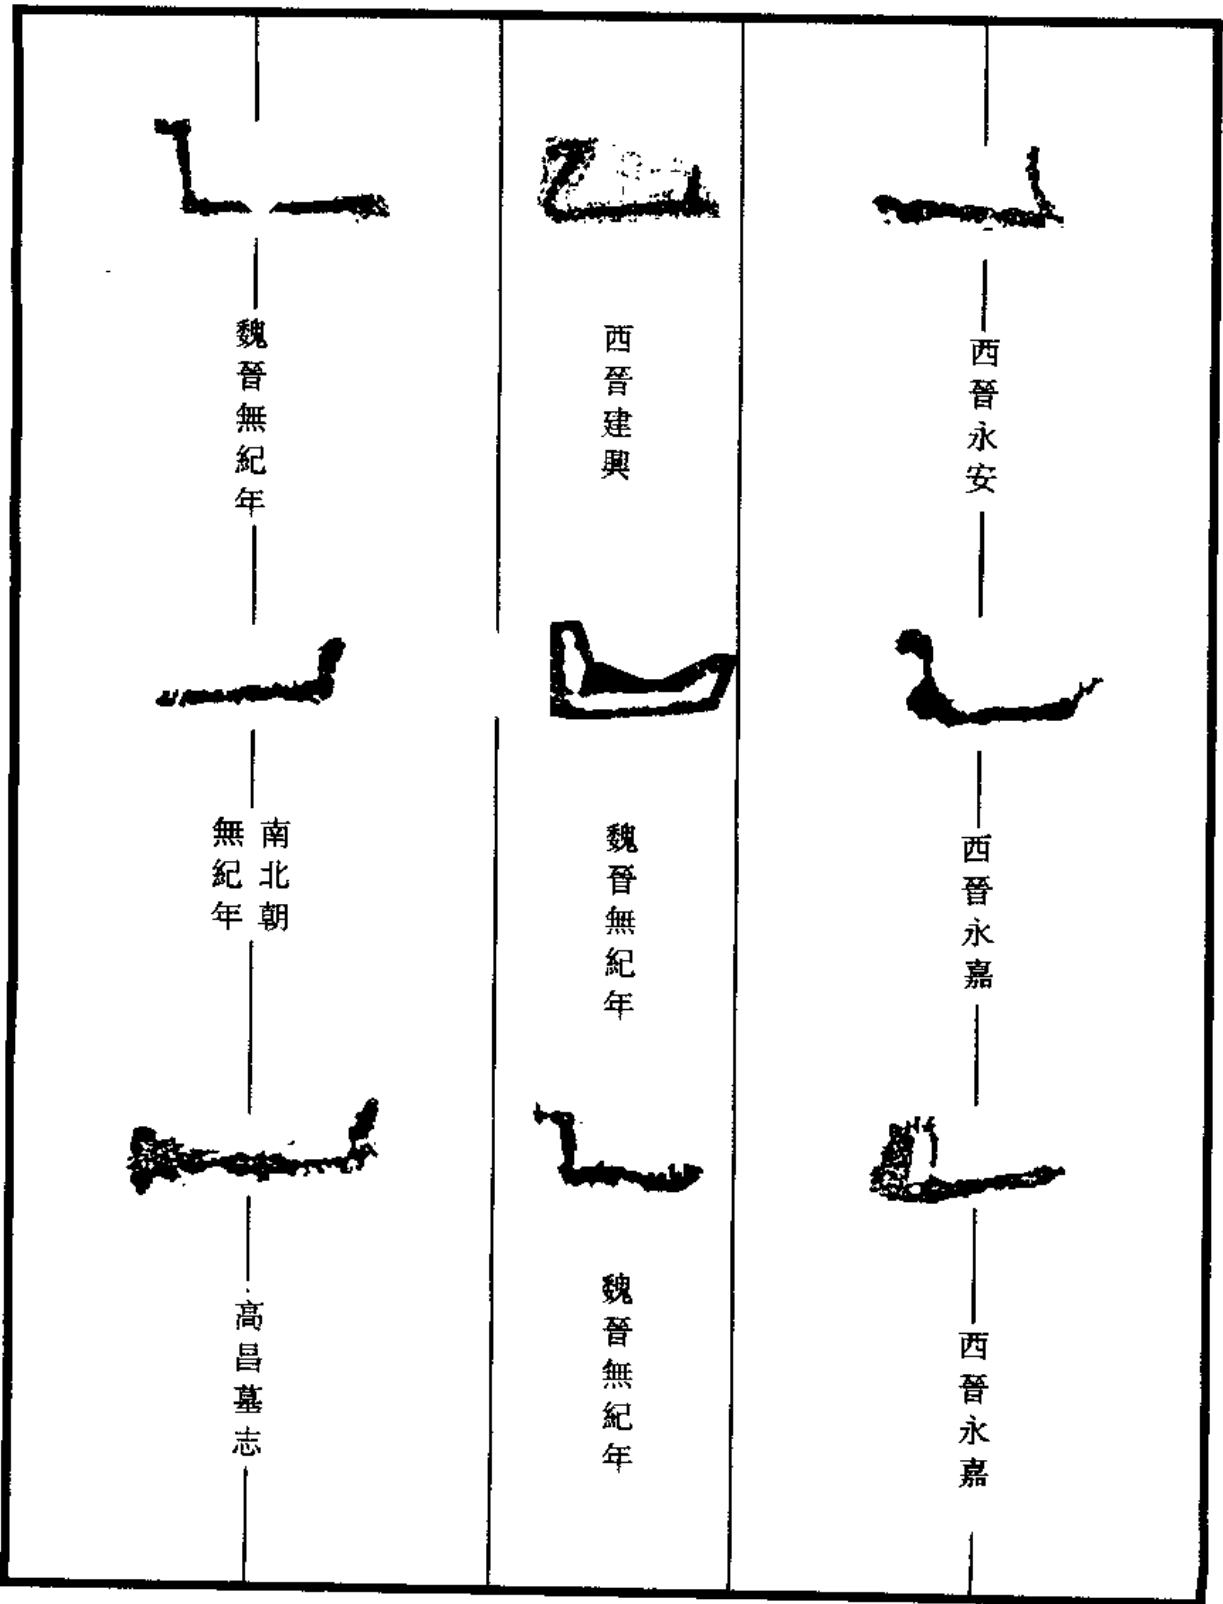 西晉永安
西晉永嘉
西晉永嘉
西晉建興
魏晉無紀年
魏晉無紀年
魏晉無紀年
南北朝
無紀年
高昌墓志